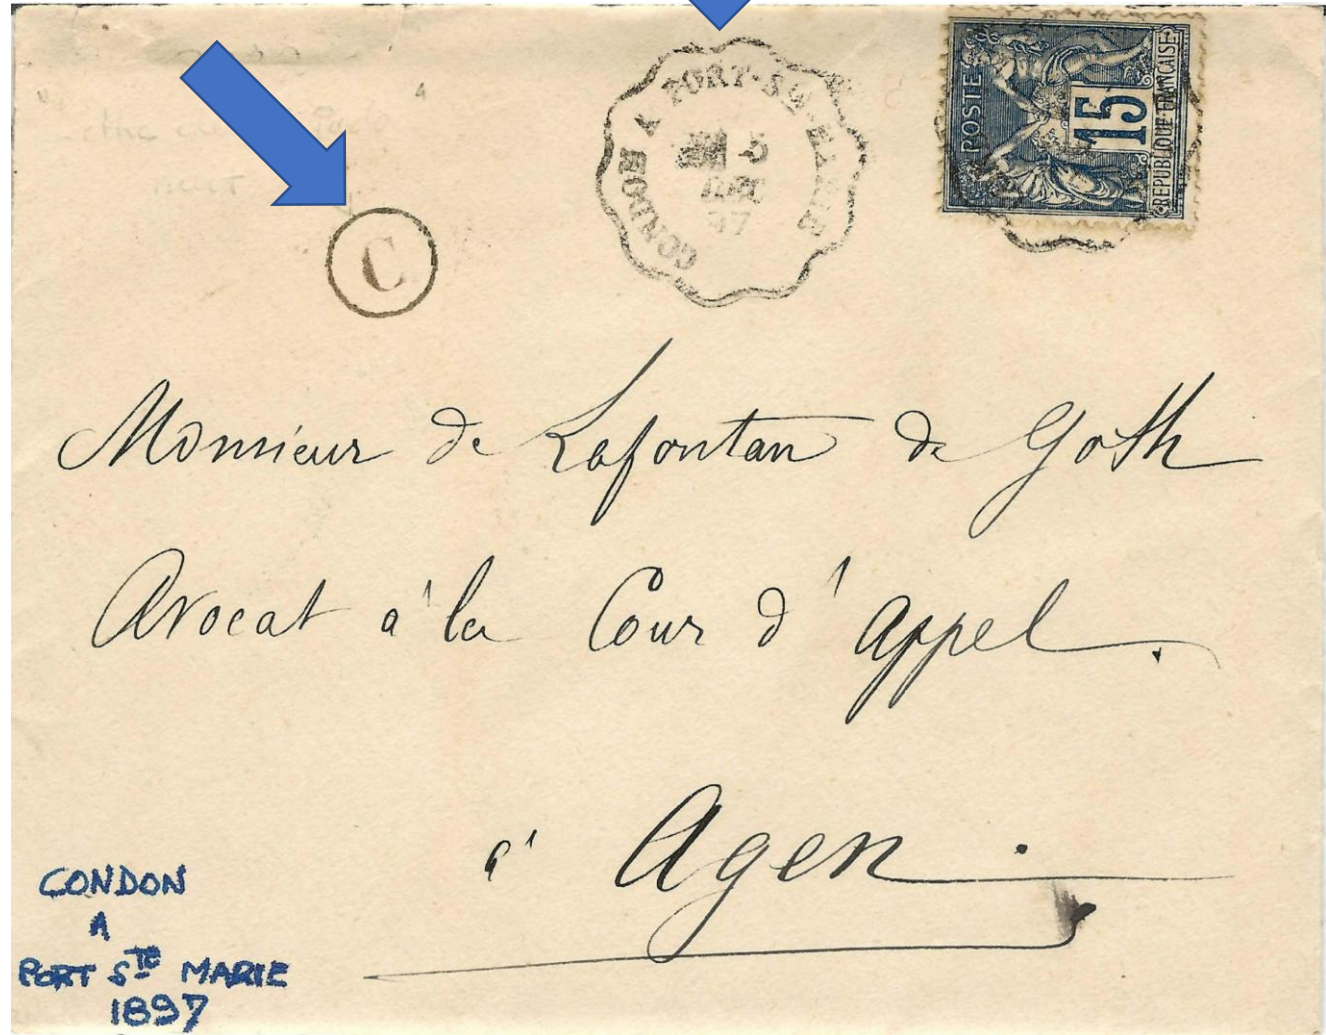 CONDOM A PORT-STE-MARIE
5
DEC
97
POSTE
15
REPUBLIQUE FRANCAISE
C
Monsieur de Lafontan de Goth
Avocat à la Cour d'Appel.
à Agen.
CONDON
A
PORT STE MARIE
1897